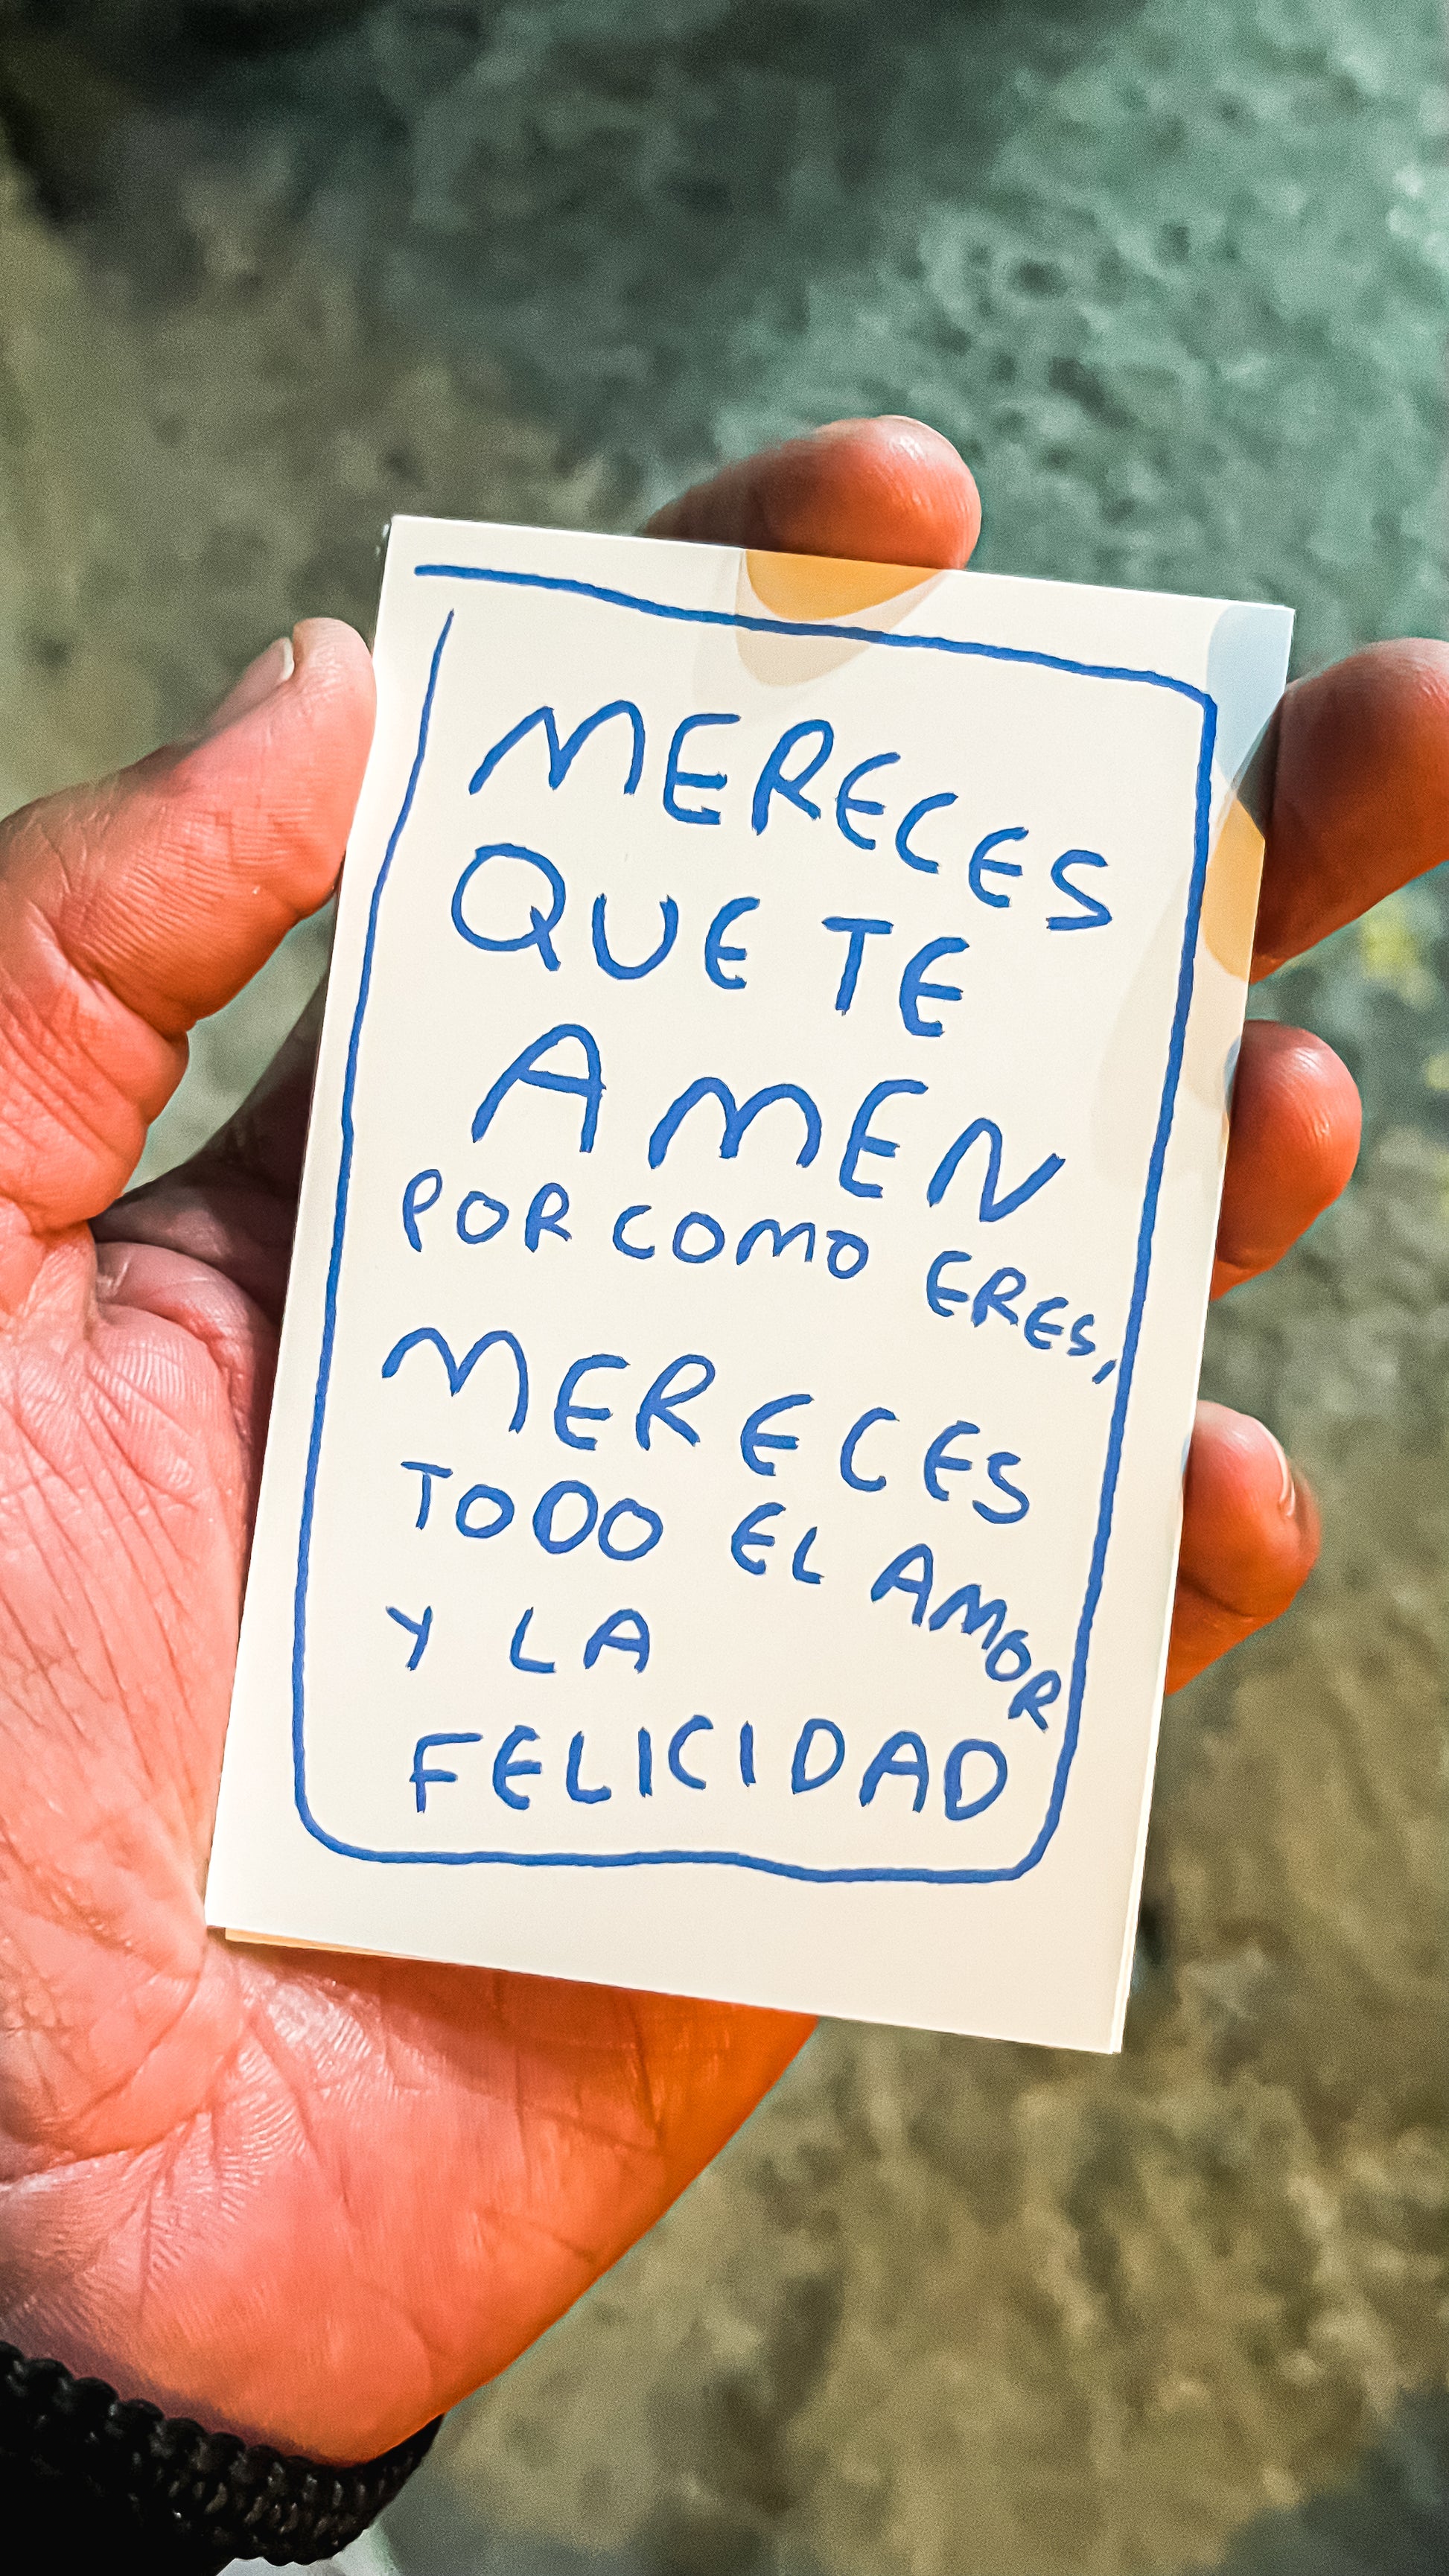 MERECES
QUE TE
AMEN
POR COMO ERES,
MERECES
TODO EL AMOR
Y LA
FELICIDAD